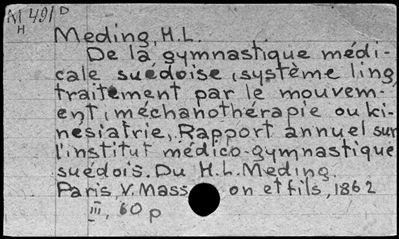 M 491 D
H
Meding, H.L.
De la gymnastique médi-
cale suedoise, système ling,
traitement par le mouvem-
ent, méchanothérapie ou ki-
nesiatrie, Rapport annuel sur
l'institut médico-gymnastique
suédois. Du H.L. Meding.
Paris, V. Mass on et fils, 1862
III, 60 p